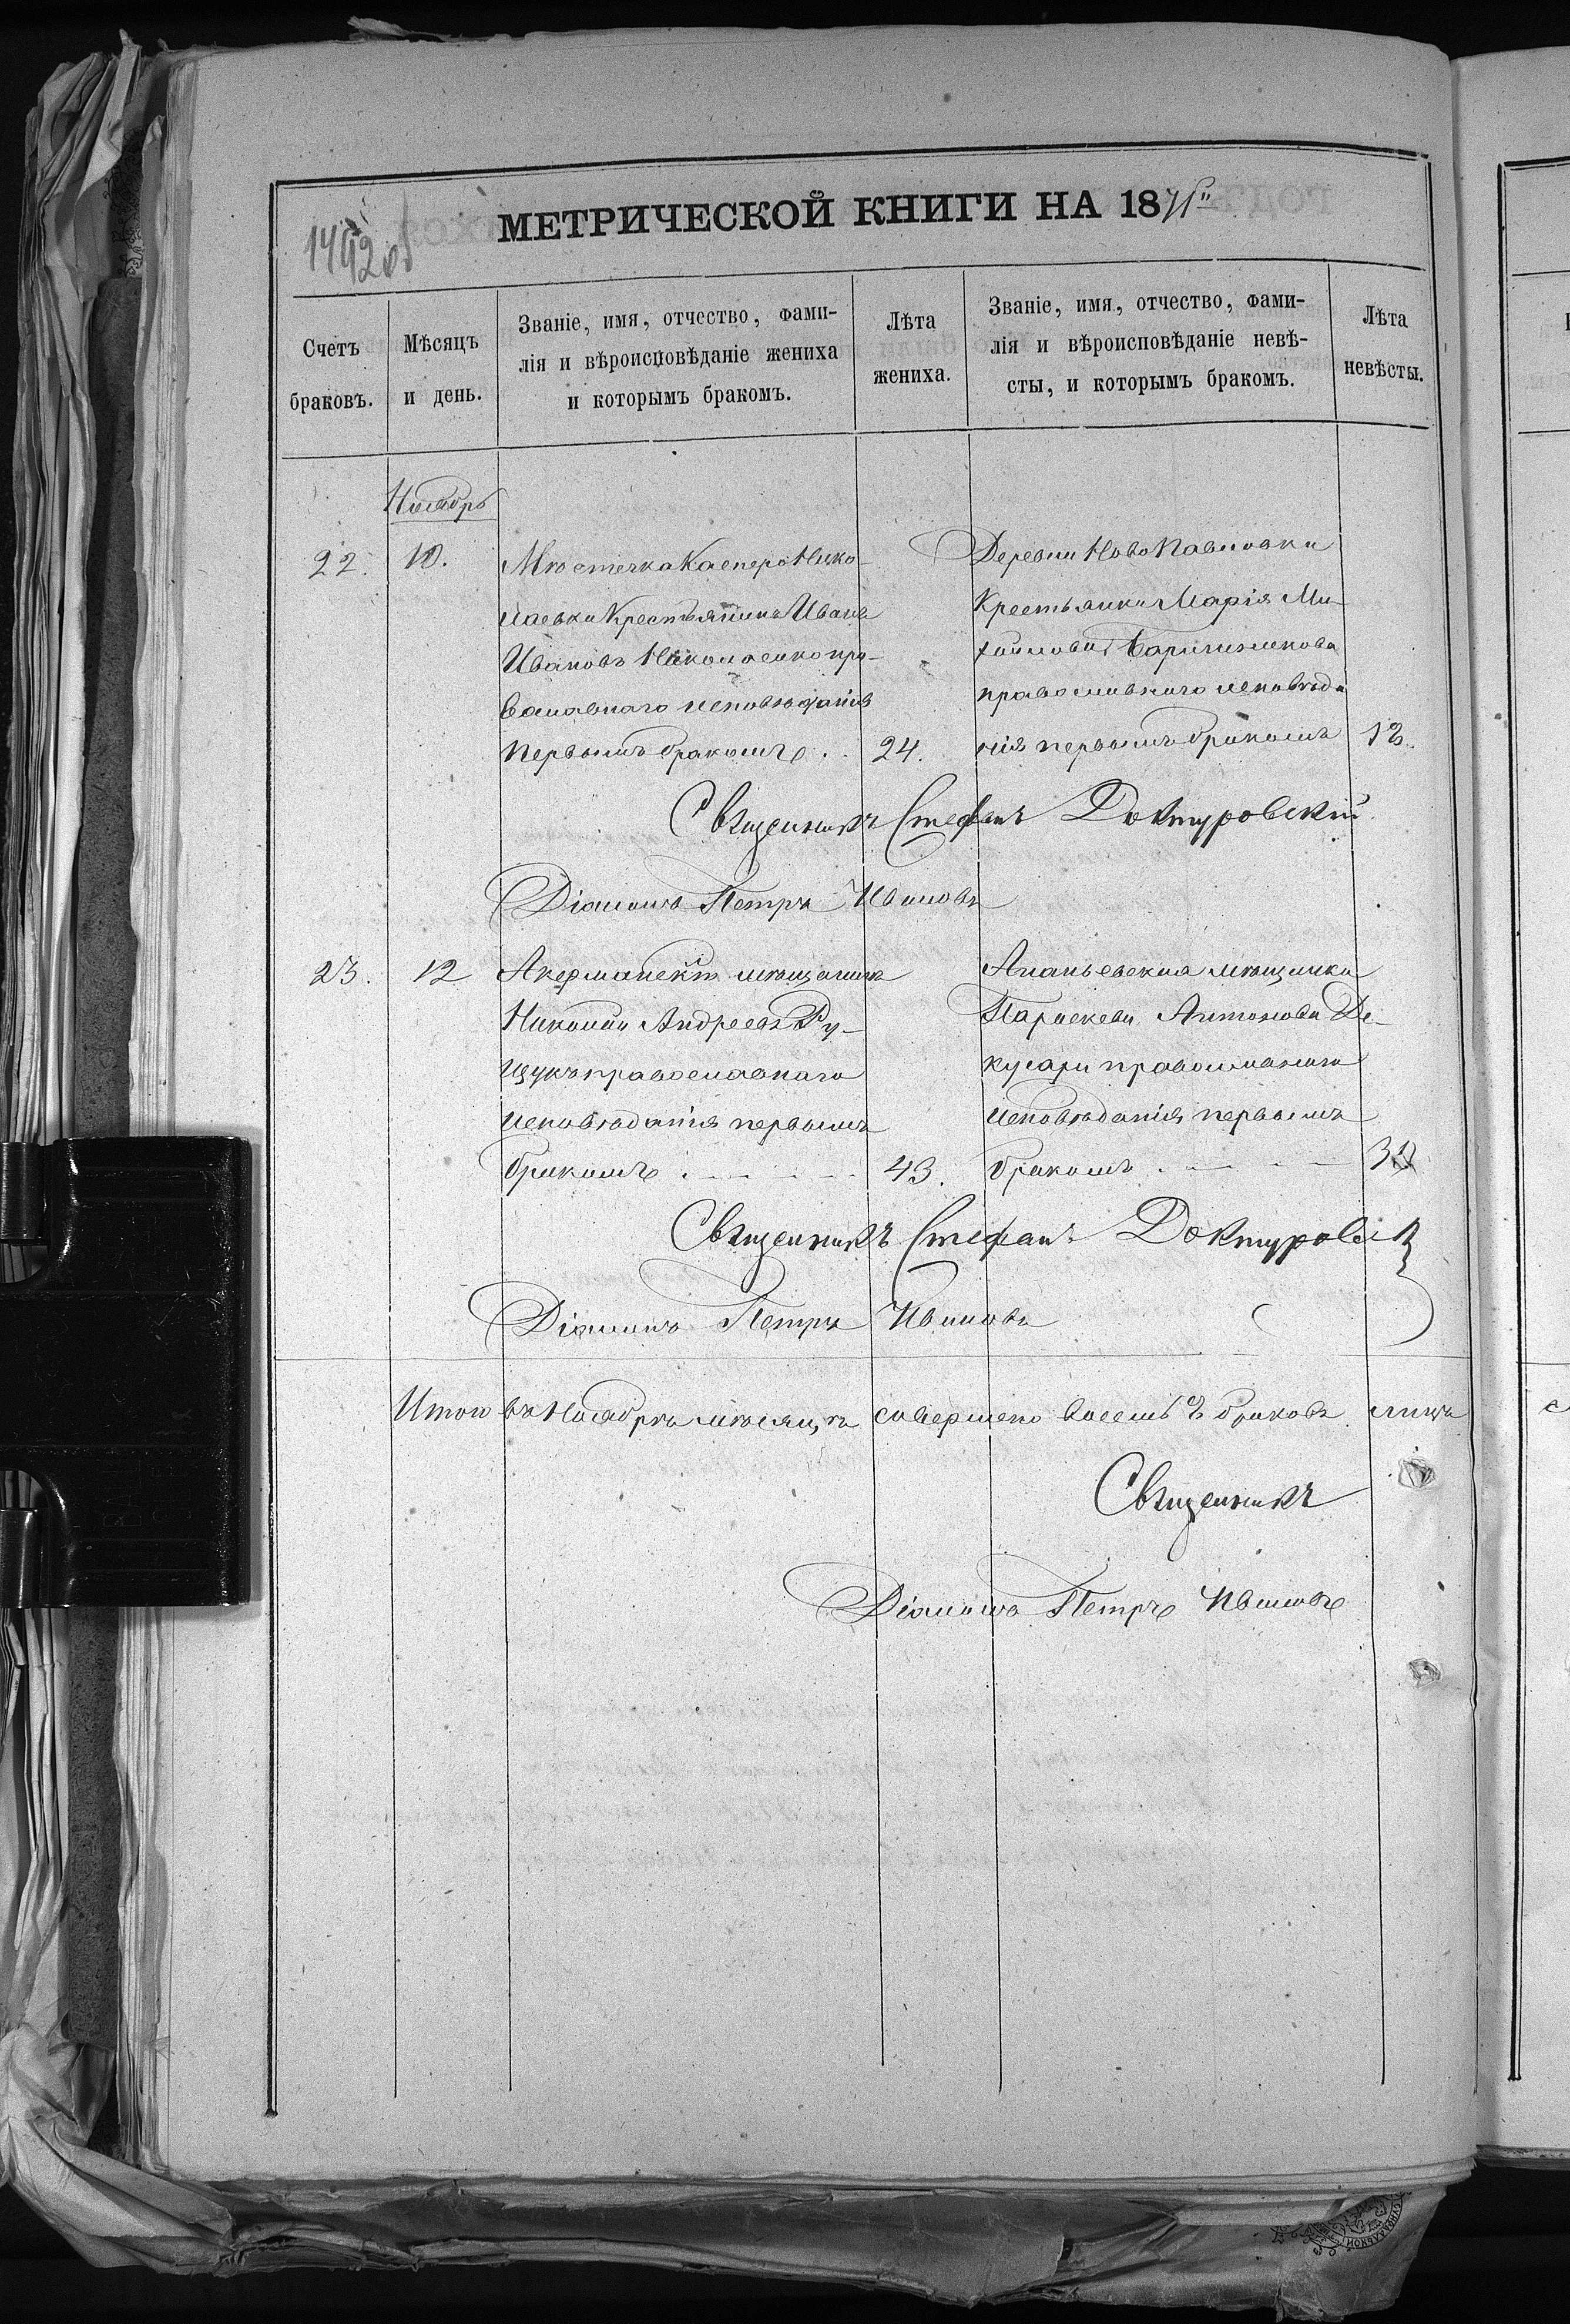 МЕТРИЧЕСКОЙ КНИГИ НА 1875
Счетъ браковъ.
Мѣсяцъ и день.
Званіе, имя, отчество, фами-
лія и вѣроисповѣданіе жениха
и которымъ бракомъ.
Лѣта
жениха.
Званіе, имя, отчество, фами-
лія и вѣроисповѣданіе невѣ-
сты, и которымъ бракомъ.
Лѣта
невѣсты.
Ноябрь
22. 10.
Мѣстечка Касперо Нико-
лаевки Крестьянинъ Иванъ
Ивановъ Николаенко пра-
вославнаго исповѣданія
первымъ бракомъ.
24.
Деревни Ново Павловки
Крестьянка Марія Ми-
хайлова
православнаго исповѣда
нія первымъ бракомъ
Священникъ Стефанъ Доктуровскій
Діаконъ Петръ Ивановъ
23. 12
Акерманскій мѣщанинъ
Николай Андреевъ Ру-
щукъ православнаго
исповѣданія первымъ
бракомъ
43.
Ананьевская мѣщанка
Параскева Антонова Де-
кусара православнаго
исповѣданія первымъ
бракомъ
Священникъ Стефанъ Доктуровскій
Діаконъ Петръ Ивановъ
Итого въ Ноябрѣ мѣсяцѣ совершено восемь браковъ
Священникъ
Діаконъ Петръ Ивановъ